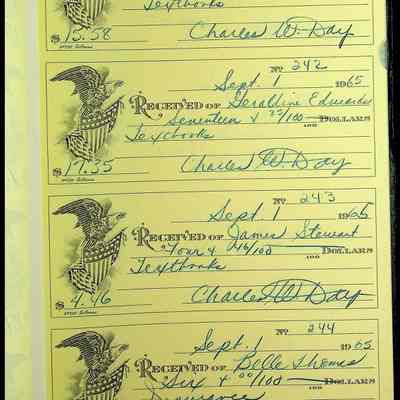 Textbooks
$ 15.58 Charles W. Day
No 242
Sept. 1 1965
Received of Geraldine Edwards
Seventeen & 35/100 Dollars
Textbooks
$ 17.35 Charles W. Day
No 243
Sept 1 1965
Received of James Stewart
Four & 46/100 Dollars
Textbooks
$ 4.46 Charles W. Day
No 244
Sept. 1 1965
Received of Belle Thomas
Six & 00/100 Dollars
Insurance